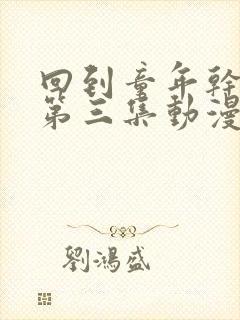 回到童年幹
第三集動漫
劉鴻盛